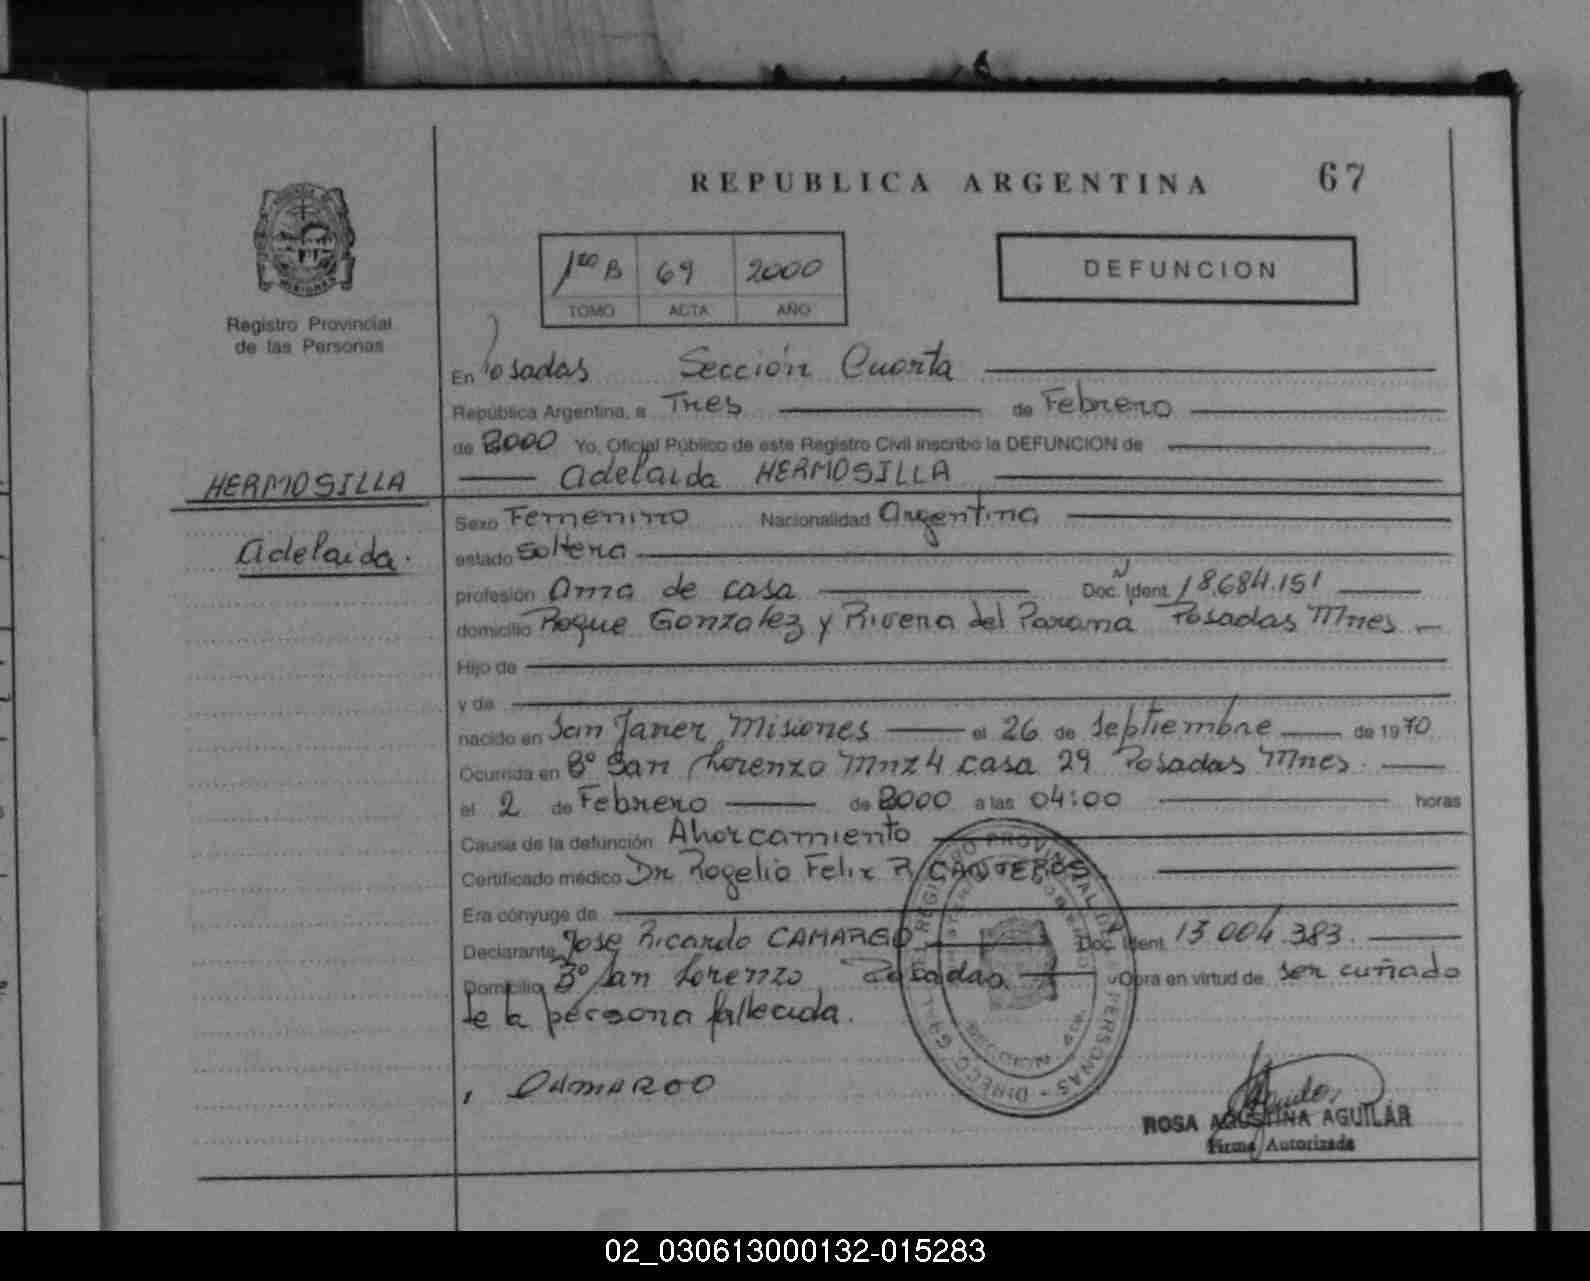 REPUBLICA ARGENTINA
67
1ro B 69 2000
TOMO ACTA AÑO
DEFUNCION
MISIONES
Registro Provincial
de las Personas
En Posadas Sección Cuarta
República Argentina, a Tres de Febrero
de 2000 Yo, Oficial Público de este Registro Civil inscribo la DEFUNCION de
Adelaida HERMOSILLA
HERMOSILLA
Adelaida.
Sexo Femenino Nacionalidad Argentina
estado Soltera
profesión Ama de casa Doc. Ident. Nº 18.684.151
domicilio Roque Gonzalez y Rivera del Paraná Posadas Mnes
Hijo de
y de
nacido en San Javier Misiones el 26 de Septiembre de 1970
Ocurrida en Bº San Lorenzo Mnz 4 casa 29 Posadas Mnes.
el 2 de Febrero de 2000 a las 04:00 horas
Causa de la defunción Ahorcamiento
Certificado médico Dr Rogelio Felix R CANTEROS
Era cónyuge de
Declarante Jose Ricardo CAMARGO Doc. Ident. 13.004.383.
Domicilio Bº San Lorenzo Posadas Obra en virtud de ser cuñado
de la persona fallecida.
CAMARGO
ROSA AGUSTINA AGUILAR
Firma Autorizada
02_030613000132-015283